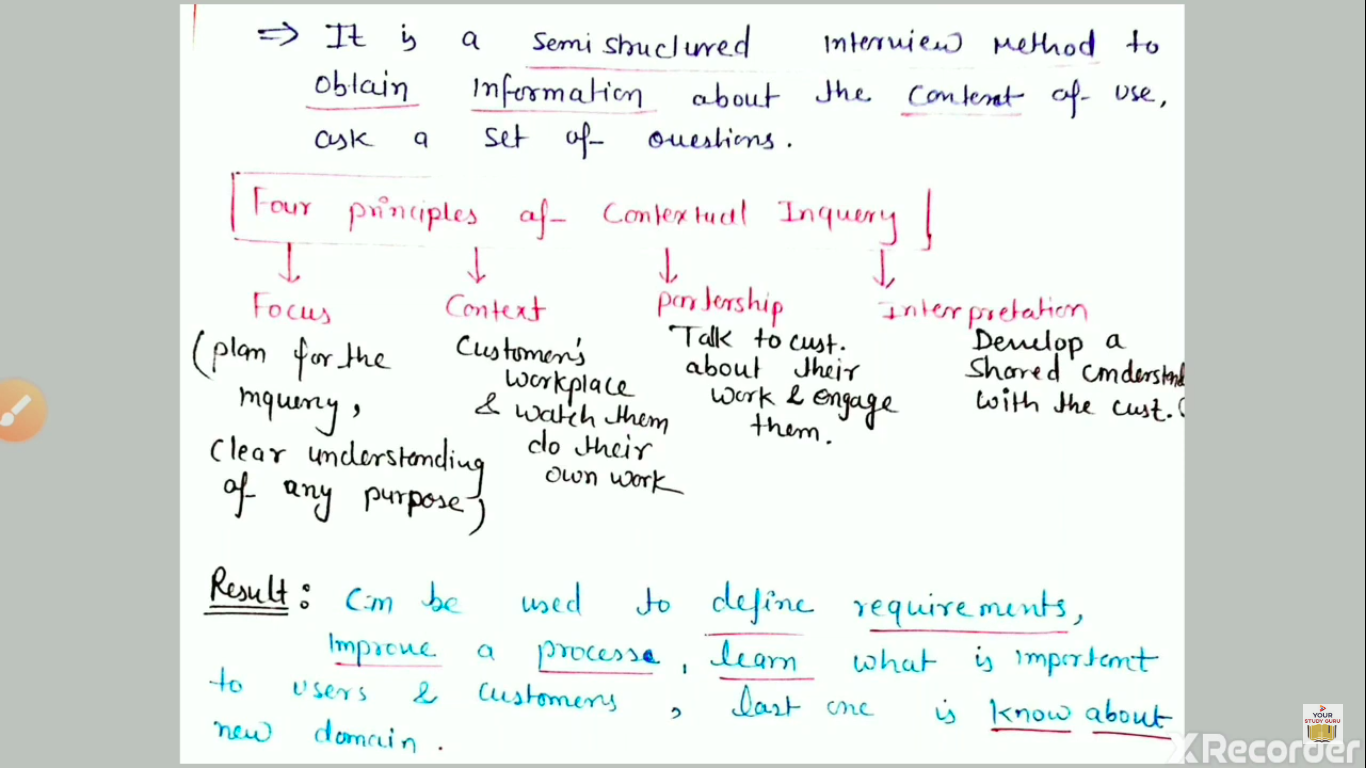 ⇒ It is a semi structured interview method to
obtain information about the context of use,
ask a set of questions.
Four principles of Contextual Inquery
Focus
(plan for the
inquery,
clear understanding
of any purpose)
Context
Customer's
workplace
& watch them
do their
own work
partership
Talk to cust.
about their
work & engage
them.
Interpretation
Develop a
shared understand
with the cust.
Result: Can be used to define requirements,
Improve a process, learn what is important
to users & customers, last one is know about
new domain.
YOUR
STUDY GURU
XRecorder